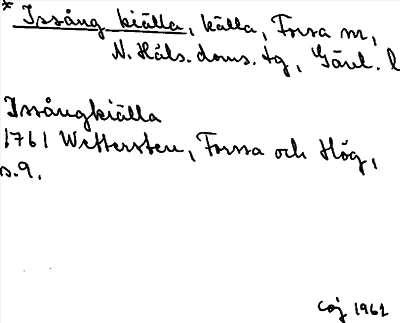 * Issång kiälla, källa, Forsa sn,
N. Häls. doms. tg, Gävl. l
Issångkiälla
1761 Wettersten, Forssa och Hög,
s.9.
1961